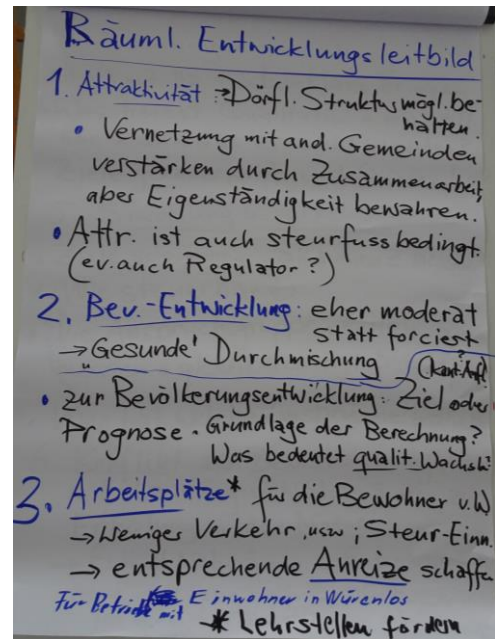 Räuml. Entwicklungsleitbild
1. Attraktivität → Dörfl. Struktur mögl. be-
halten.
• Vernetzung mit and. Gemeinden
verstärken durch Zusammenarbeit,
aber Eigenständigkeit bewahren.
• Attr. ist auch steurfussbedingt.
(ev. auch Regulator?)
2. Bev.-Entwicklung: eher moderat
statt forciert
→ „Gesunde' Durchmischung
(kant. Anf.?)
• zur Bevölkerungsentwicklung: Ziel oder
Prognose. Grundlage der Berechnung?
Was bedeutet qualit. Wachst.?
3. Arbeitsplätze* für die Bewohner v. W
→ Weniger Verkehr, usw; Steur-Einn.
→ entsprechende Anreize schaffen
Für Betriebe mit Einwohner in Würenlos
* Lehrstellen fördern